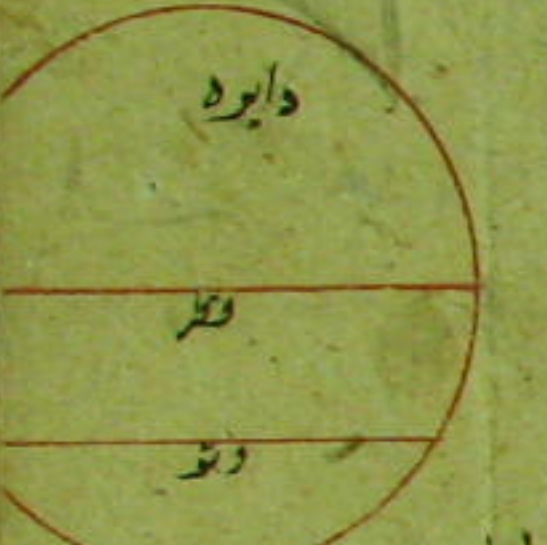 دایره
قطر
وتر